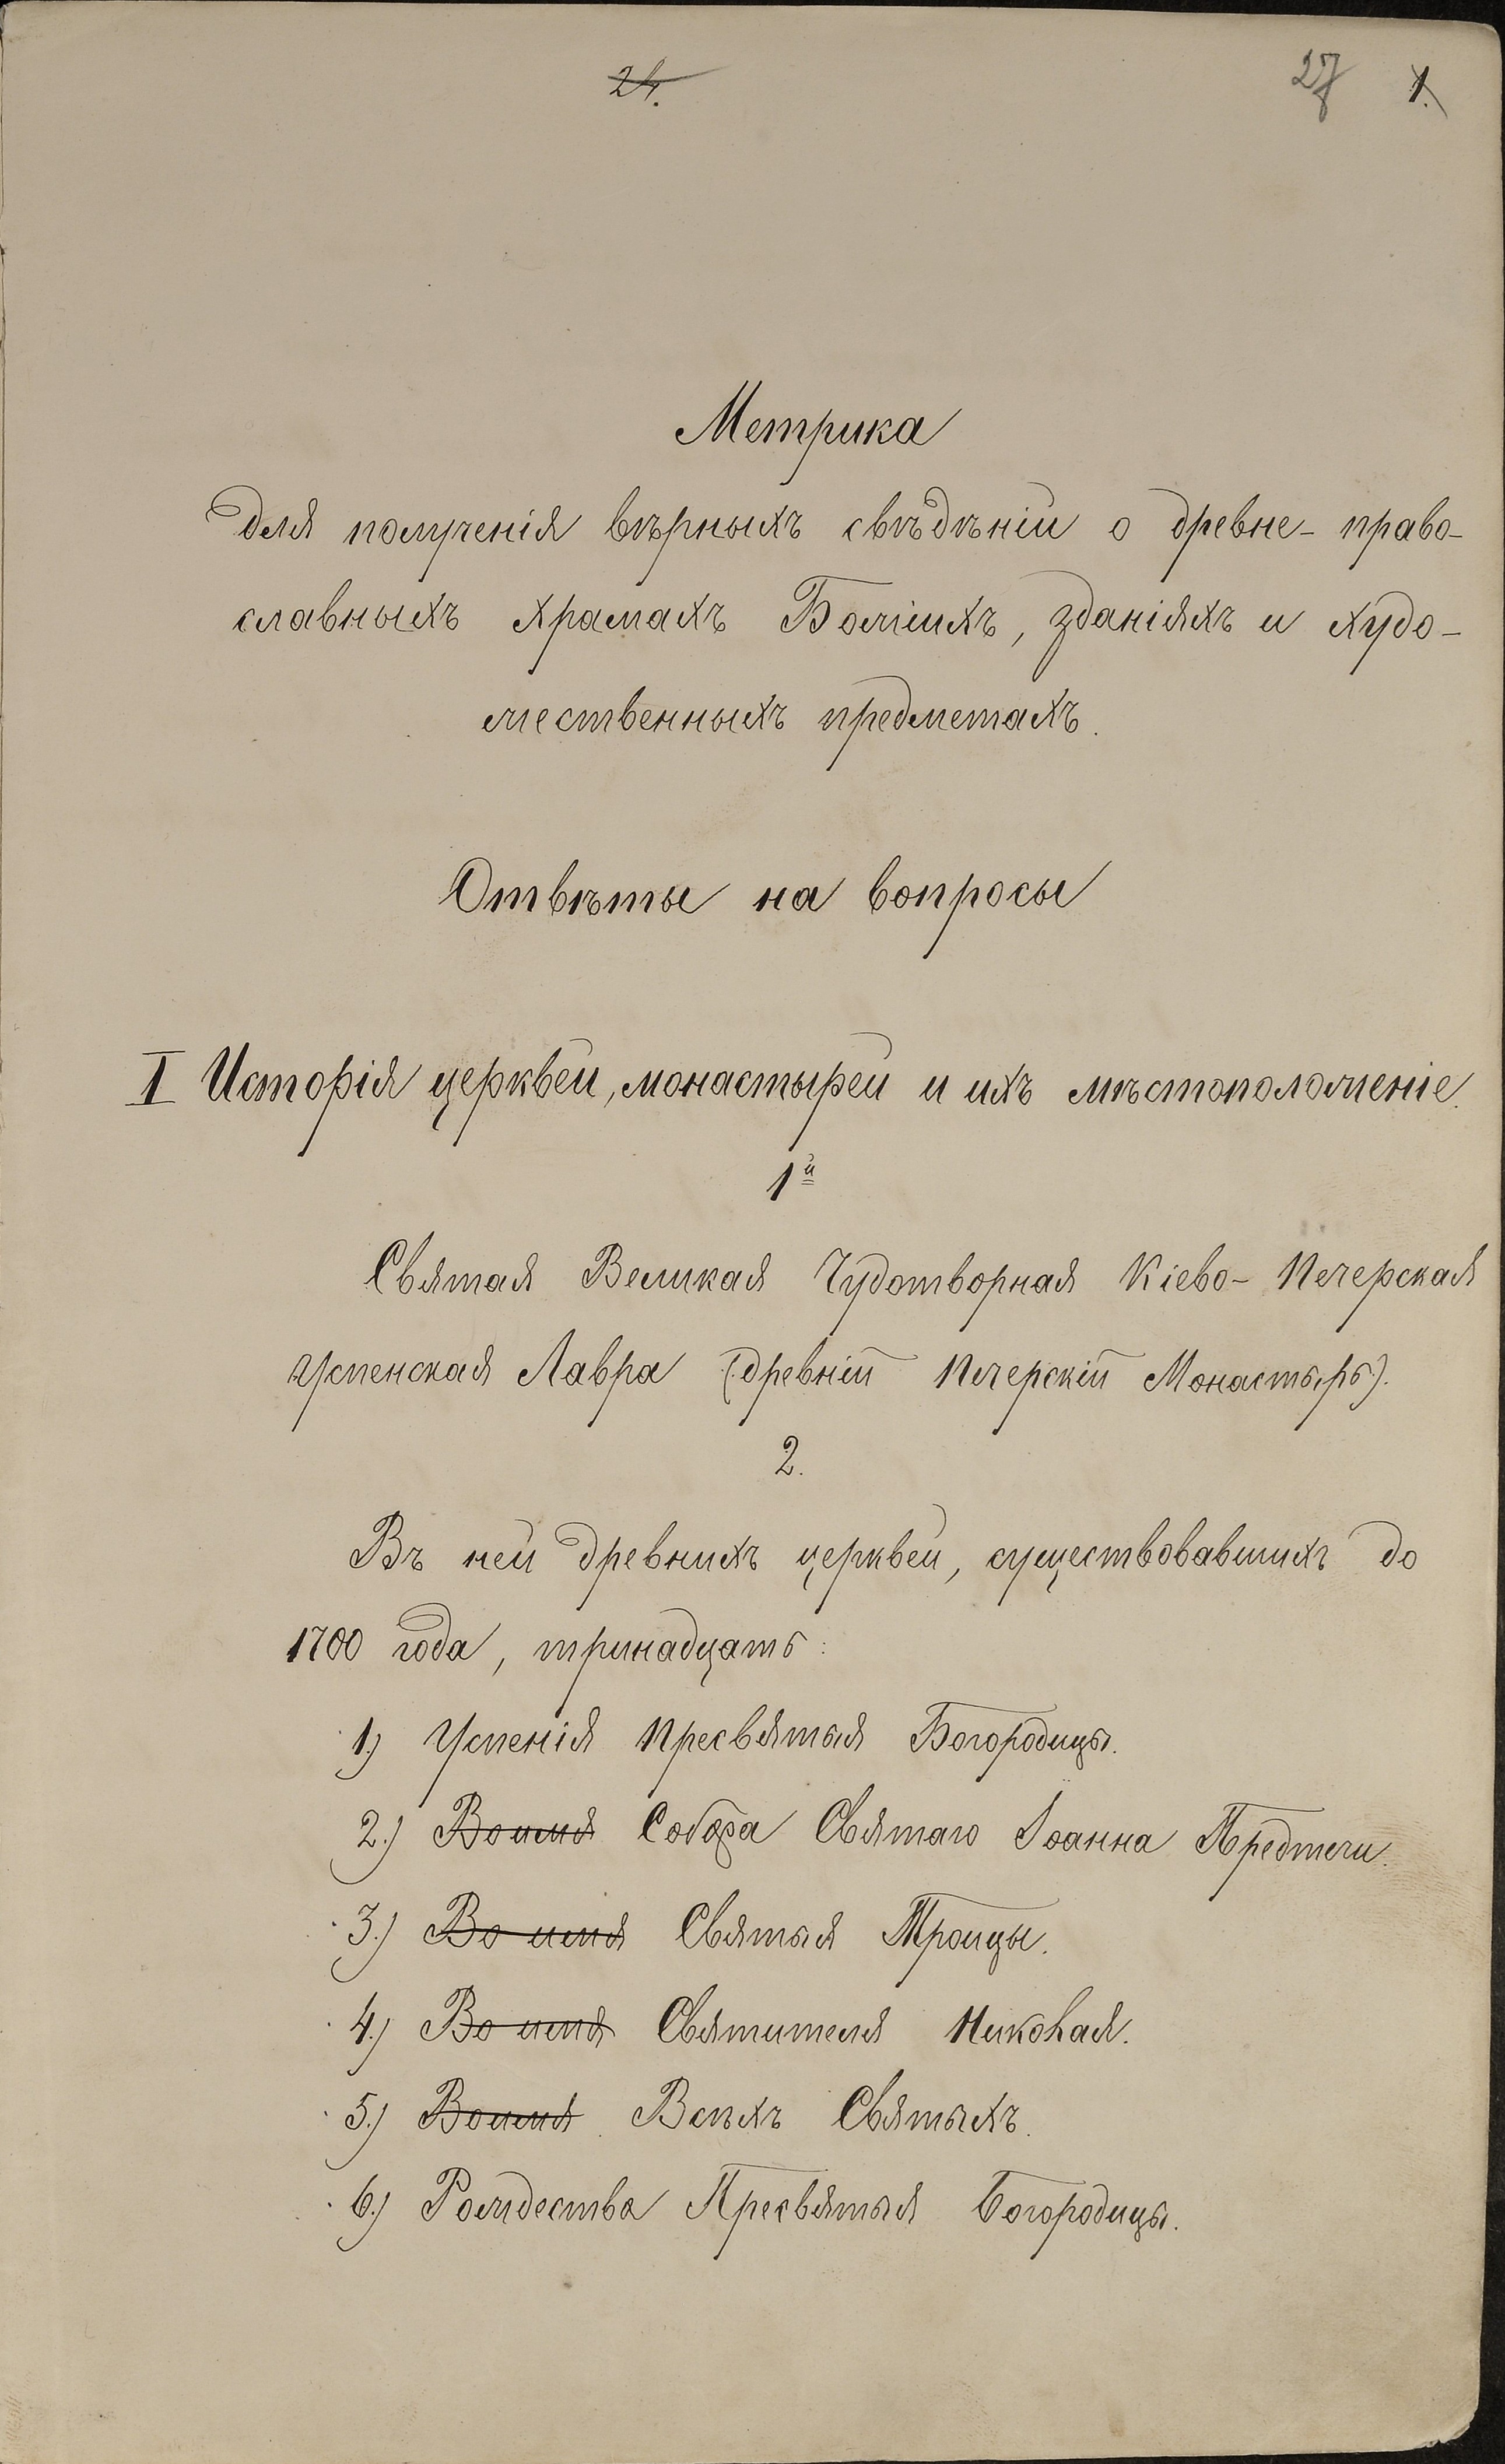 24.
27 1.
Метрика
для полученія вѣрныхъ свѣдѣній о древне-право-
славныхъ храмахъ Божіихъ, зданіяхъ и худо-
жественныхъ предметахъ.
Отвѣты на вопросы
I Исторія церквей, монастырей и ихъ мѣстоположеніе.
1й
Святая Великая Чудотворная Кіево-Печерская
Успенская Лавра (древній Печерскій Монастырь).
2.
Въ ней древнихъ церквей, существовавшихъ до
1700 года, тринадцать:
1.) Успенія Пресвятыя Богородицы.
2.) Во имя Собора Святаго Іоанна Предтечи.
3.) Во имя Святыя Троицы.
4.) Во имя Святителя Николая.
5.) Во имя Всѣхъ Святыхъ.
6.) Рождества Пресвятыя Богородицы.